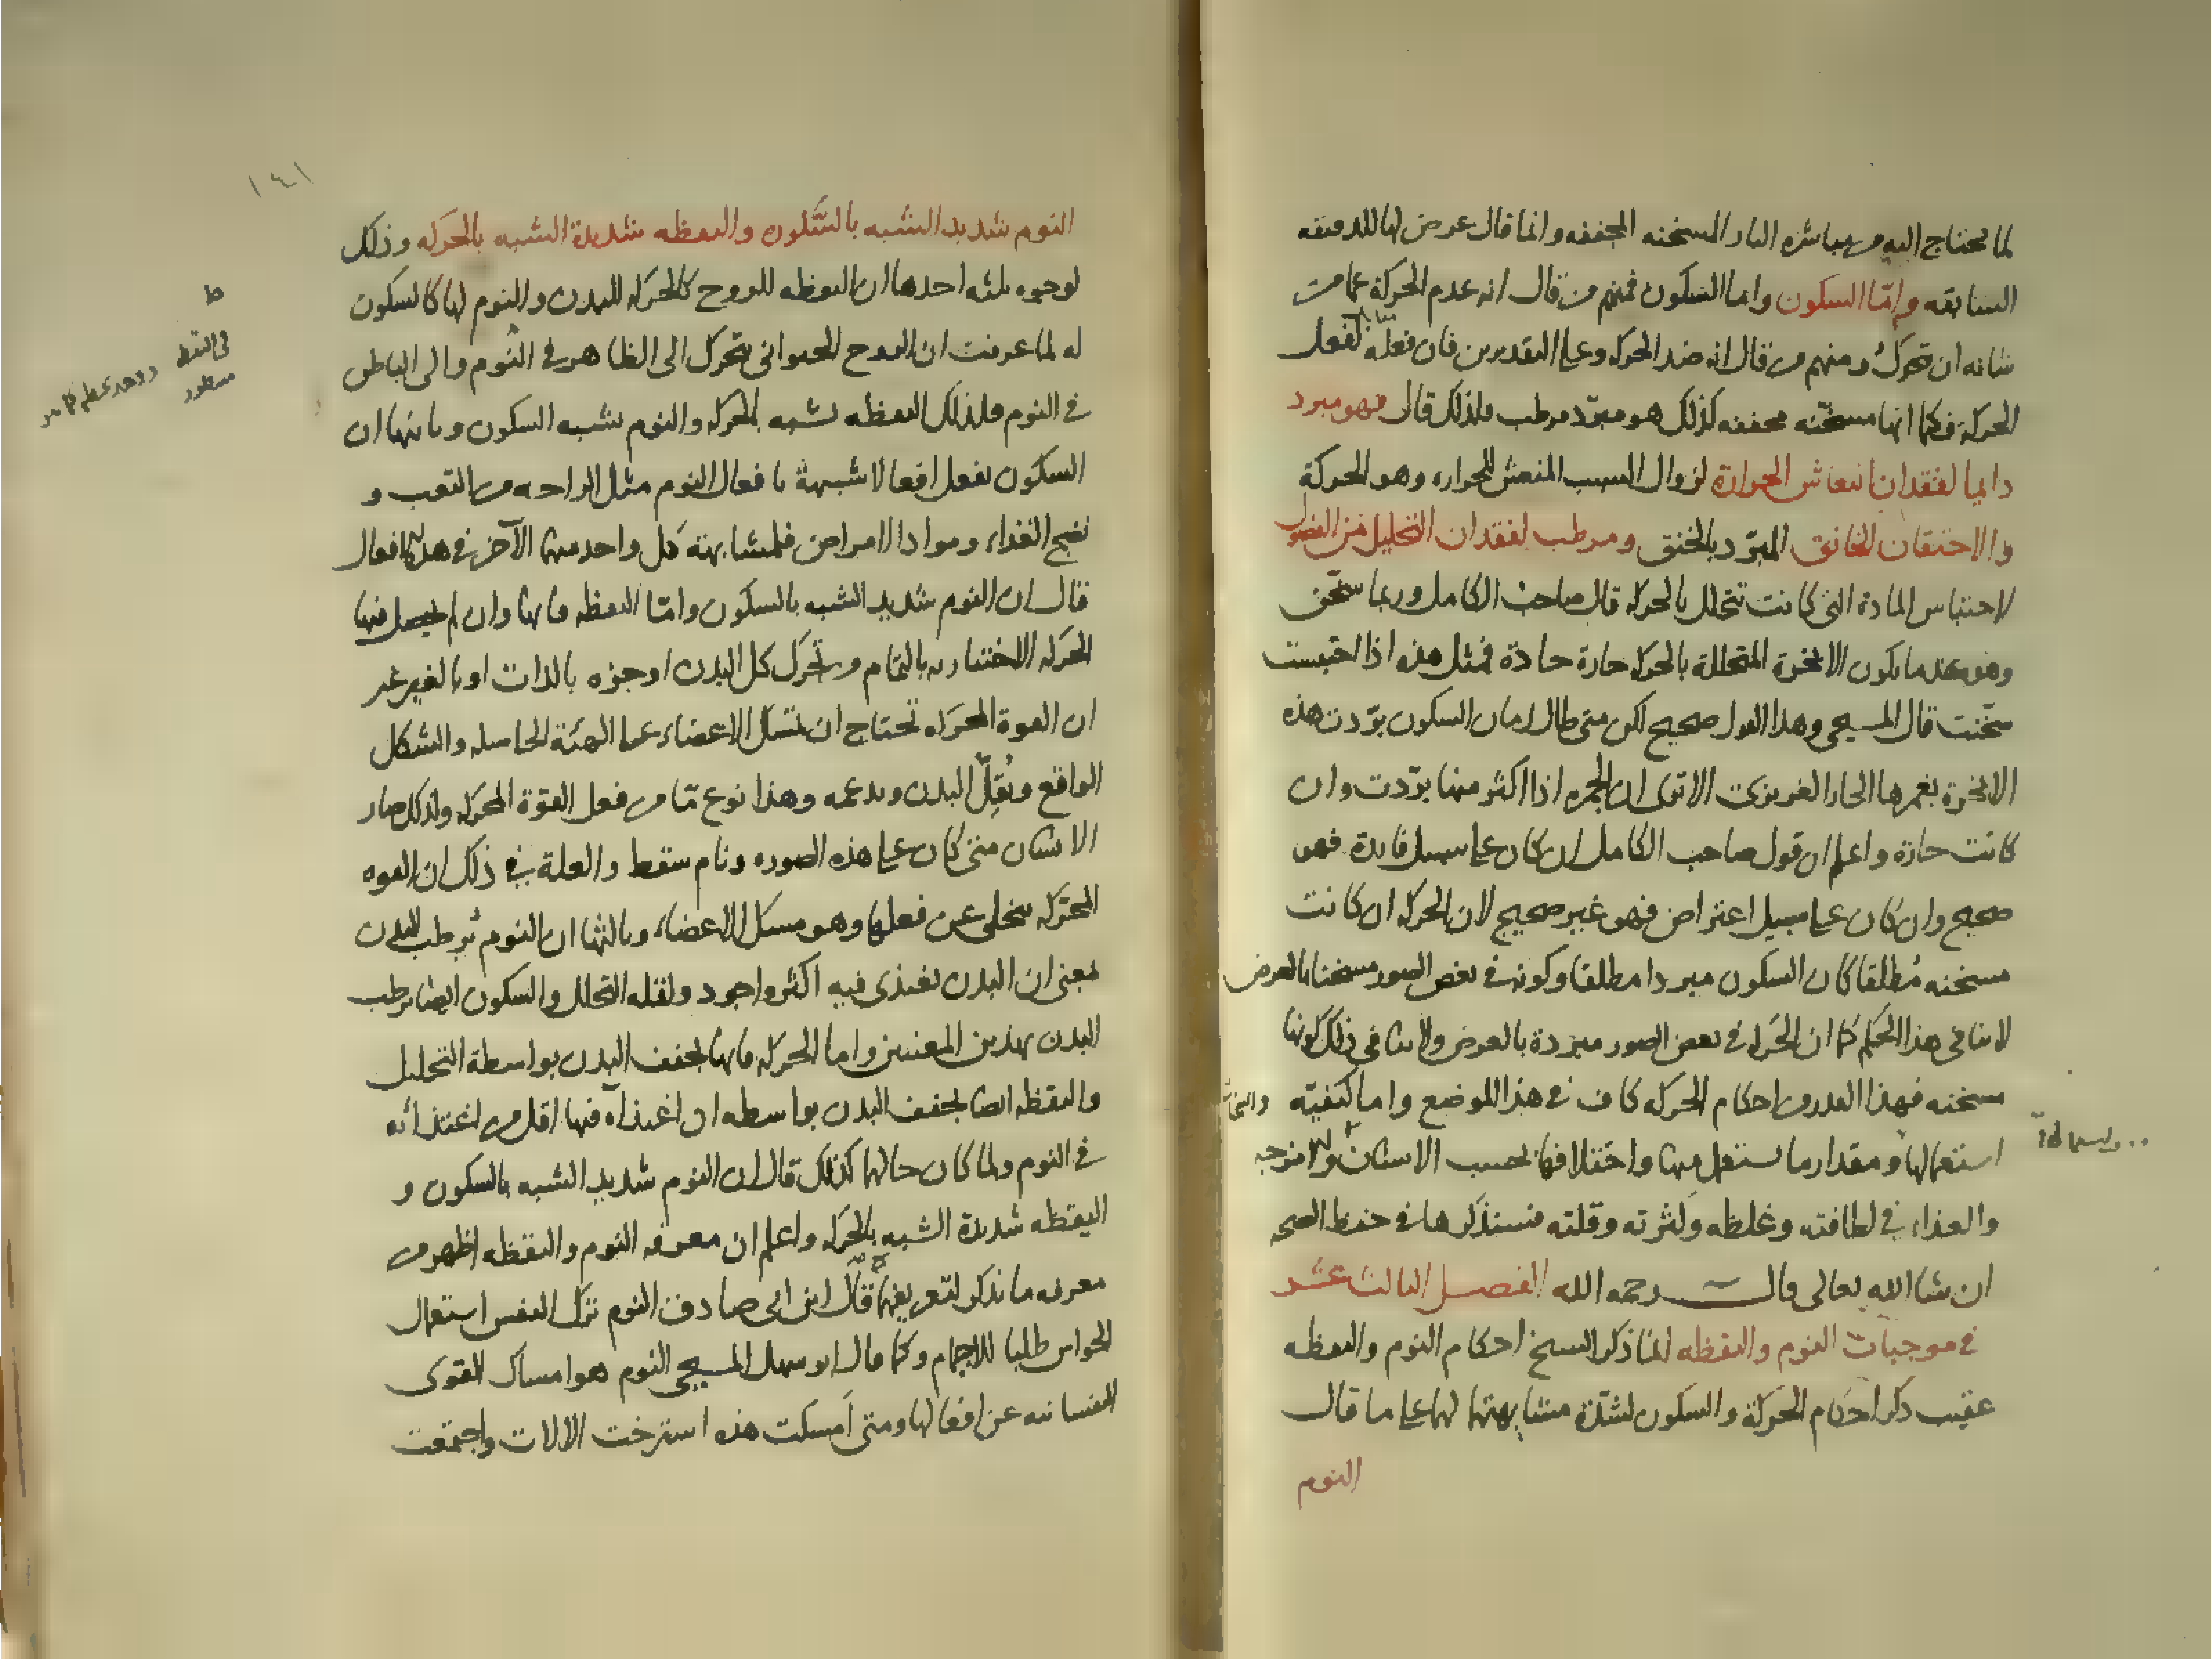 لما يحتاج اليه من مباشره النار المسخنه المجففه وانما قال عرض لها للدقيقه
السابقه واما السكون واما السكون فمنهم من قال انه عدم الحركة عما من
شانه ان تحرك ومنهم من قال انه ضد الحركه وعلى التقديرين فان فعله لفعل
الحركة فكما انها مسخنه مجففه كذلك هو مبرد مرطب فلذلك قال فهو مبرد
دايما لفقدان انتعاش الحرارة لزوال السبب المنعش للحراره وهو الحركة
والاحتقان الخانق المبرد بالخنق ومرطب لفقدان التحليل من الفضول
لاحتباس المادة التي كانت تتحلل بالحركه قال صاحب الكامل وربما سخن
وهو عند ما يكون الابخرة المتحللة بالحركه حارة حادة فمثل هذه اذا احتبست
سخنت قال المسيحي وهذا القول صحيح لكن متى طال زمان السكون بردت هذه
الابخرة بغمرها الحار الغريزي الا ترى ان الجمره اذا اكثر منها بردت وان
كانت حارة واعلم ان قول صاحب الكامل ان كان على سبيل فايدة فهو
صحيح وان كان على سبيل اعتراض فهو غير صحيح لان الحركه ان كانت
مسخنه مطلقا كان السكون مبردا مطلقا وكونه في بعض الصور مسخنا بالعرض
لا ينافي هذا الحكم كما ان الحركه في بعض الصور مبردة بالعرض ولا ينافي ذلك كونها
مسخنه فهذا القدر من احكام الحركه كاف في هذا الموضع واما كيفيه
استعمالها ومقدار ما يستعمل منها واختلافها بحسب الاسنان
والغذاء في لطافته وغلظه وكثرته وقلته فسنذكرها في حفظ الصحه
ان شا الله تعالى قال رحمه الله الفصل الثالث عشر
في موجبات النوم واليقظه انما ذكر الشيخ احكام النوم واليقظه
عقيب ذكر احكام الحركة والسكون لشدة مشابهتها لها على ما قال
النوم
١٤١
النوم شديد الشبه بالسكون واليقظه شديدة الشبه بالحركه وذلك
لوجوه ثلثه احدها ان اليقظه للروح كالحركه للبدن والنوم لها كالسكون
له لما عرفت ان الروح الحيواني يتحرك الى الظاهر في النوم والى الباطن
في النوم فلذلك اليقظه تشبه الحركه والنوم يشبه السكون وثانيها ان
السكون يفعل افعالا شبيهة بافعال النوم مثل الراحه من التعب و
نضج الغذاء ومواد الامراض فلمشابهته كل واحد منهما الآخر في هذه الافعال
قال ان النوم شديد الشبه بالسكون واما اليقظه فانها وان لم يحصل فيها
الحركه الاختياريه بالتمام من تحرك كل البدن او جزه بالذات او بالغير غير
ان القوة المحركه تحتاج ان تمسك الاعضاء على الهيئة الحاصله والشكل
الواقع وتقل البدن وتدعمه وهذا نوع ما من فعل القوة المحركه ولذلك صار
الانسان متى كان على هذه الصوره ونام سقط والعلة في ذلك ان القوه
المحركه تتخلى عن فعلها وهو مسك الاعضاء وثالثها ان النوم يرطب البدن
بمعنى ان البدن يغتذي فيه اكثر واجود ولقله التحلل والسكون ايضا يرطب
البدن بهذين المعنيين واما الحركه فانها تجفف البدن بواسطة التحليل
واليقظه ايضا تجفف البدن بواسطه ان اغتذاه فيها اقل من اغتذائه
في النوم ولما كان حالها كذلك قال ان النوم شديد الشبه بالسكون و
اليقظه شديدة الشبه بالحركه واعلم ان معرفه النوم واليقظه اظهر من
معرفه ما يذكر لتعريفهما قال ابن ابي صادق النوم ترك النفس استعمال
الحواس طلبا للاجمام وكما قال ابو سهل المسيحي النوم هو امساك القوى
النفسانيه عن افعالها ومتى امسكت هذه استرخت الالات واجتمعت
ط
في اليقظه